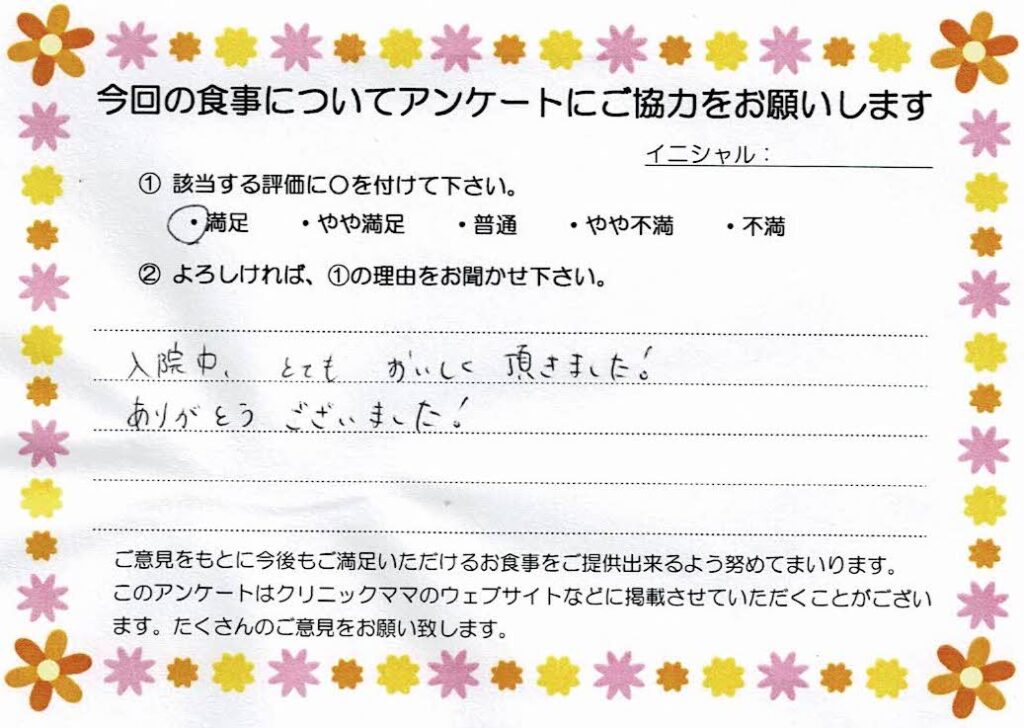 今回の食事についてアンケートにご協力をお願いします
イニシャル：
① 該当する評価に〇を付けて下さい。
・満足 ・やや満足 ・普通 ・やや不満 ・不満
② よろしければ、①の理由をお聞かせ下さい。
入院中、とても おいしく 頂きました!
ありがとう ございました!
ご意見をもとに今後もご満足いただけるお食事をご提供出来るよう努めてまいります。
このアンケートはクリニックママのウェブサイトなどに掲載させていただくことがござい
ます。たくさんのご意見をお願い致します。